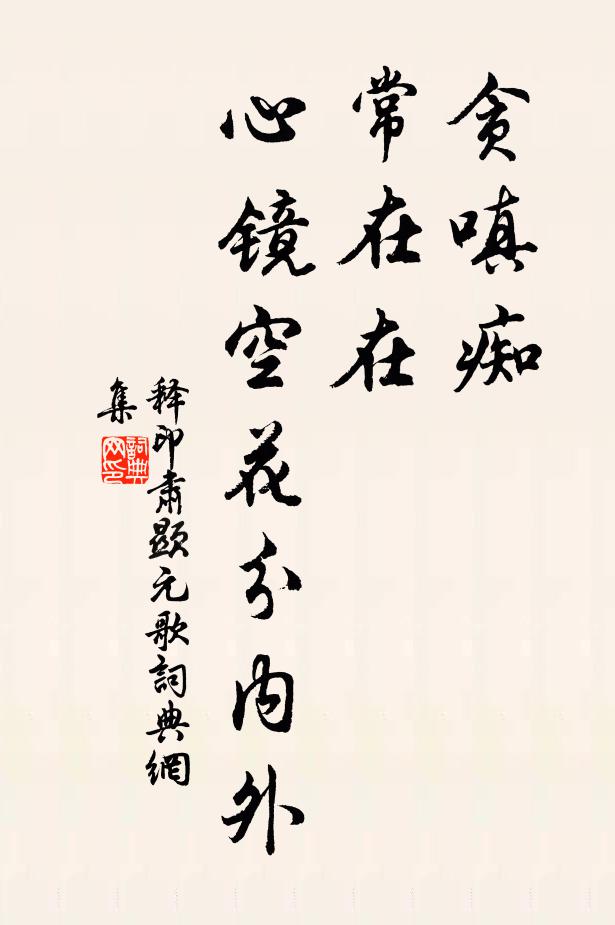 贪嗔痴
常在在
心镜空花分内外
释印肃显元歌詞典網
集
詞典网印